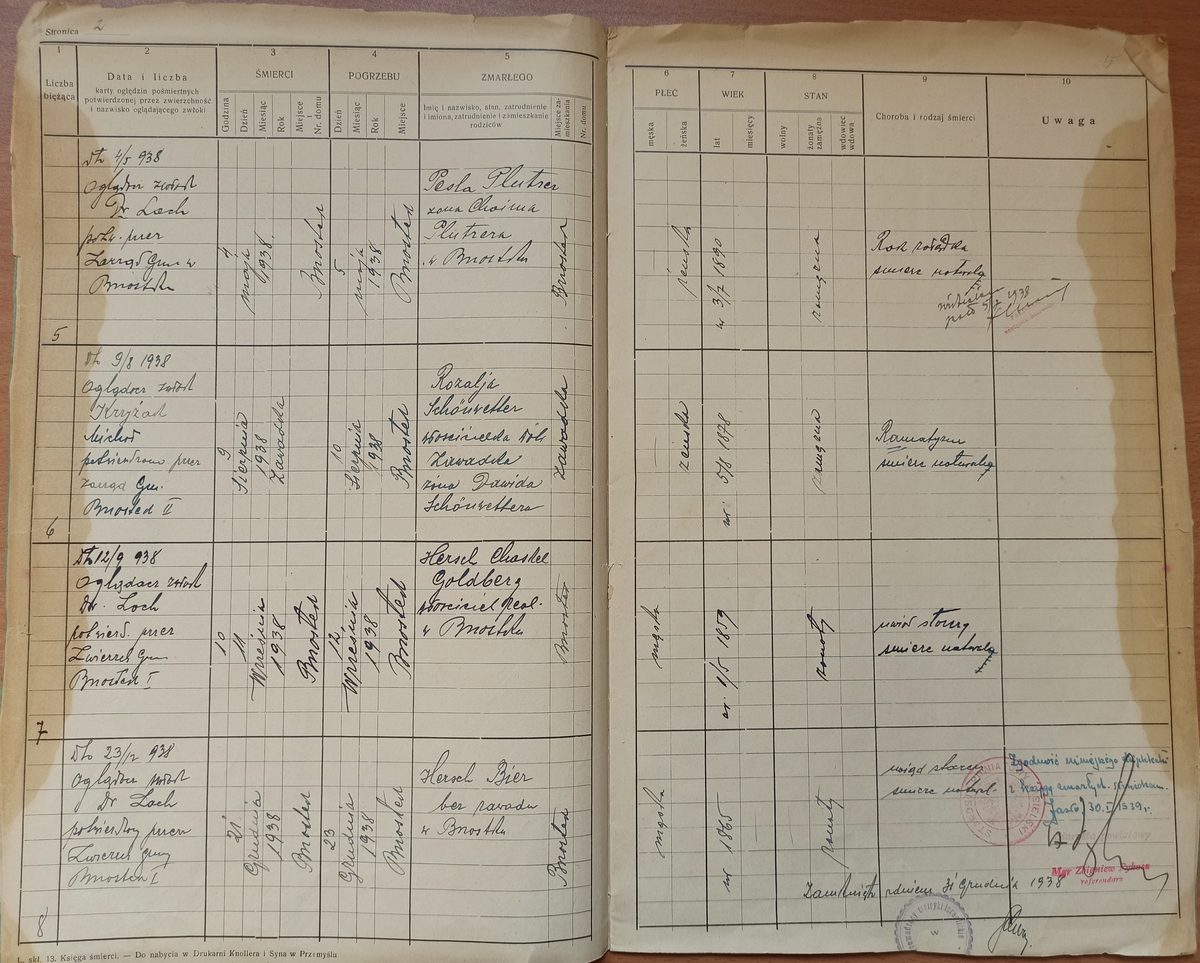 Stronica 2
1
2
3
4
5
Liczba bieżąca
Data i liczba
karty oględzin pośmiertnych
potwierdzonej przez zwierzchność
i nazwisko oglądającego zwłoki
ŚMIERCI
Godzina
Dzień
Miesiąc
Rok
Miejsce i Nr. domu
POGRZEBU
Dzień
Miesiąc
Rok
Miejsce
ZMARŁEGO
Imię i nazwisko, stan, zatrudnienie
i imiona, zatrudnienie i zamieszkanie
rodziców
Miejsce zamieszkania
Nr. domu
5
Dto 4/5 938
Oglądacz zwłok
Dr Loch
Zarząd Gm. w
Brzostku
4
maja
1938
Brzostek
5
maja
1938
Brzostek
Pesla Plutzer
żona Chaima
Plutzera
w Brzostku
Brzostek
6
Dto 9/8 1938
Oglądacz zwłok
Michał
potwierdzono przez
zarząd Gm.
Brzostek II
9
Sierpnia
1938
Zawadka
10
Sierpnia
1938
Brzostek
Rozalja
Schönwetter
Zawadka
żona Dawida
Schönwettera
Zawadka
7
Dto 12/9 938
Oglądacz zwłok
Dr. Loch
potwierd. przez
Zwierzch Gm
Brzostek I
10
11
Września
1938
Brzostek
12
Września
1938
Brzostek
Hersch Chaskel
Goldberg
właściciel real.
w Brzostku
Brzostek
8
Dto 23/12 938
Oglądacz zwłok
Dr Loch
Zwierzch gminy
Brzostek I
21
Grudnia
1938
Brzostek
23
Grudnia
1938
Brzostek
Hersch Bier
bez zawodu
w Brzostku
Brzostek
L. skł. 13. Księga śmierci. — Do nabycia w Drukarni Knollera i Syna w Przemyślu
6
7
8
9
10
PŁEĆ
męska
żeńska
WIEK
lat
miesięcy
STAN
wolny
żonaty zamężna
wdowiec wdowa
Choroba i rodzaj śmierci
Uwaga
żeńska
ur 3/7 1890
zamężna
Rak żołądka
śmierć naturalna
1938
żeńska
ur. 5/8 1878
zamężna
Ramatyzm
śmierć naturalna
męska
ur. 1/5 1859
żonaty
uwiąd starczy
śmierć naturalna
męska
ur 1865
żonaty
uwiąd starczy
śmierć natural.
Zgodność niniejszego duplikatu
z księgą zmarłych stwierdzam.
Jasło 30.I.1939 r.
Mgr Zbigniew
referendarz
Zamknięto z dniem 31 Grudnia 1938